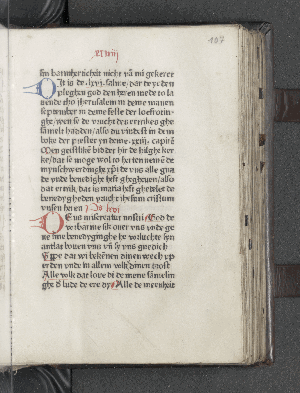 107
syn barmherticheit nicht vā mi gekeret
Dit is de .lxvi. salme / dar de yoden
plegheu god den heren mede to la
uende tho iherusalem in deme manen
september in deme feste der loeftottin
ghe / wen se de vrucht des ertrikes ghe
samelt hadden / also du vindest in dem
boke der prester yn deme .xxiij. capit
geistlike bid der hir de hilghe ker
ke / dat se moge wol to herten nemē de
mynschwerdinge xpi de vns alle gna
de vnde benedighe heft ghegheuen / also
dat ertrik, das is maria heft ghetelet de
benedygheden vrucht ihesum cristum
vnsen heren
Deus misereatur nostri / God de
vorbarme sik ouer vns vnde ge
ue vnse benedyginghe he vorluchte syn
antlat bouen vns vn sy vns gnedich
Vppe dat wi bekēnen dinen wech vp
erden vnde in allem volk dinen trost
Alle volk dat loue di de mene samelin
ghe d lude de ere dy Alle de meenheit